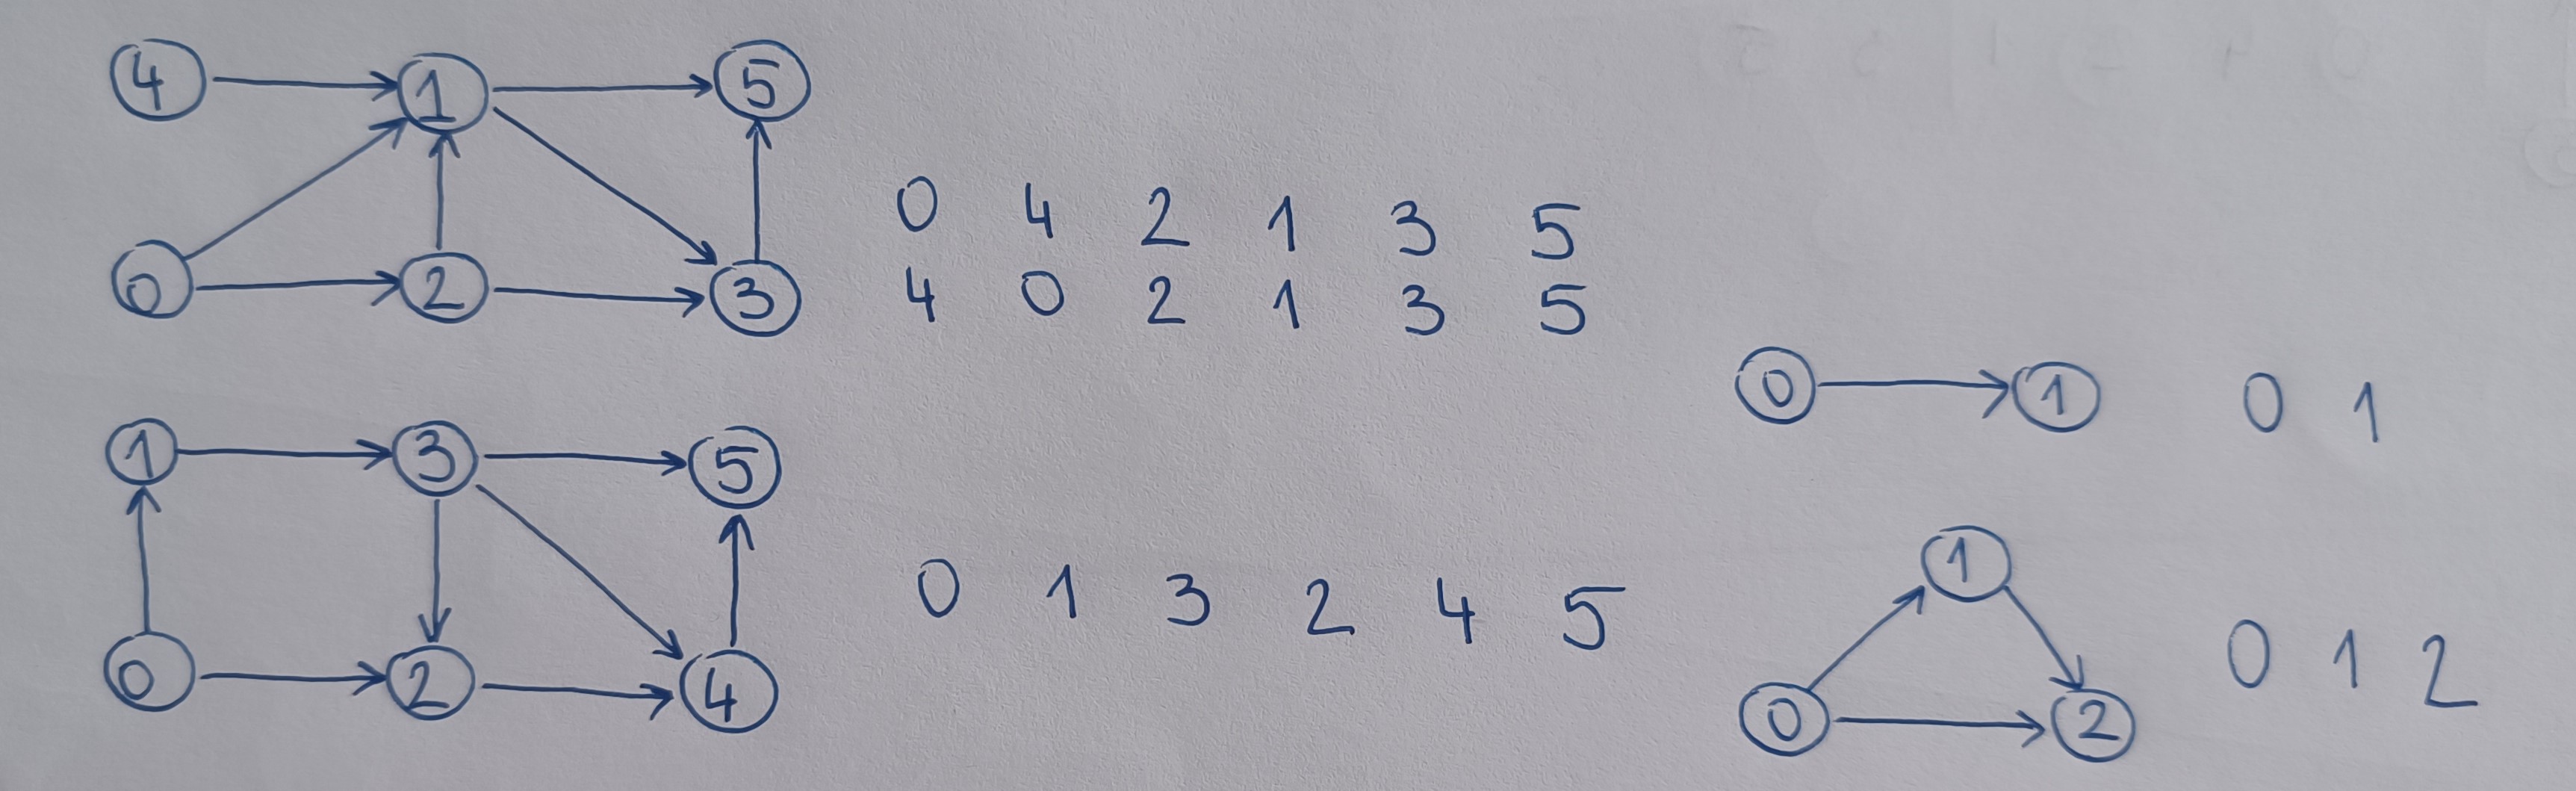 4 1 5
0 2 3
0 4 2 1 3 5
4 0 2 1 3 5
1 3 5
0 2 4
0 1 3 2 4 5
0 1 0 1
1
0 2
0 1 2